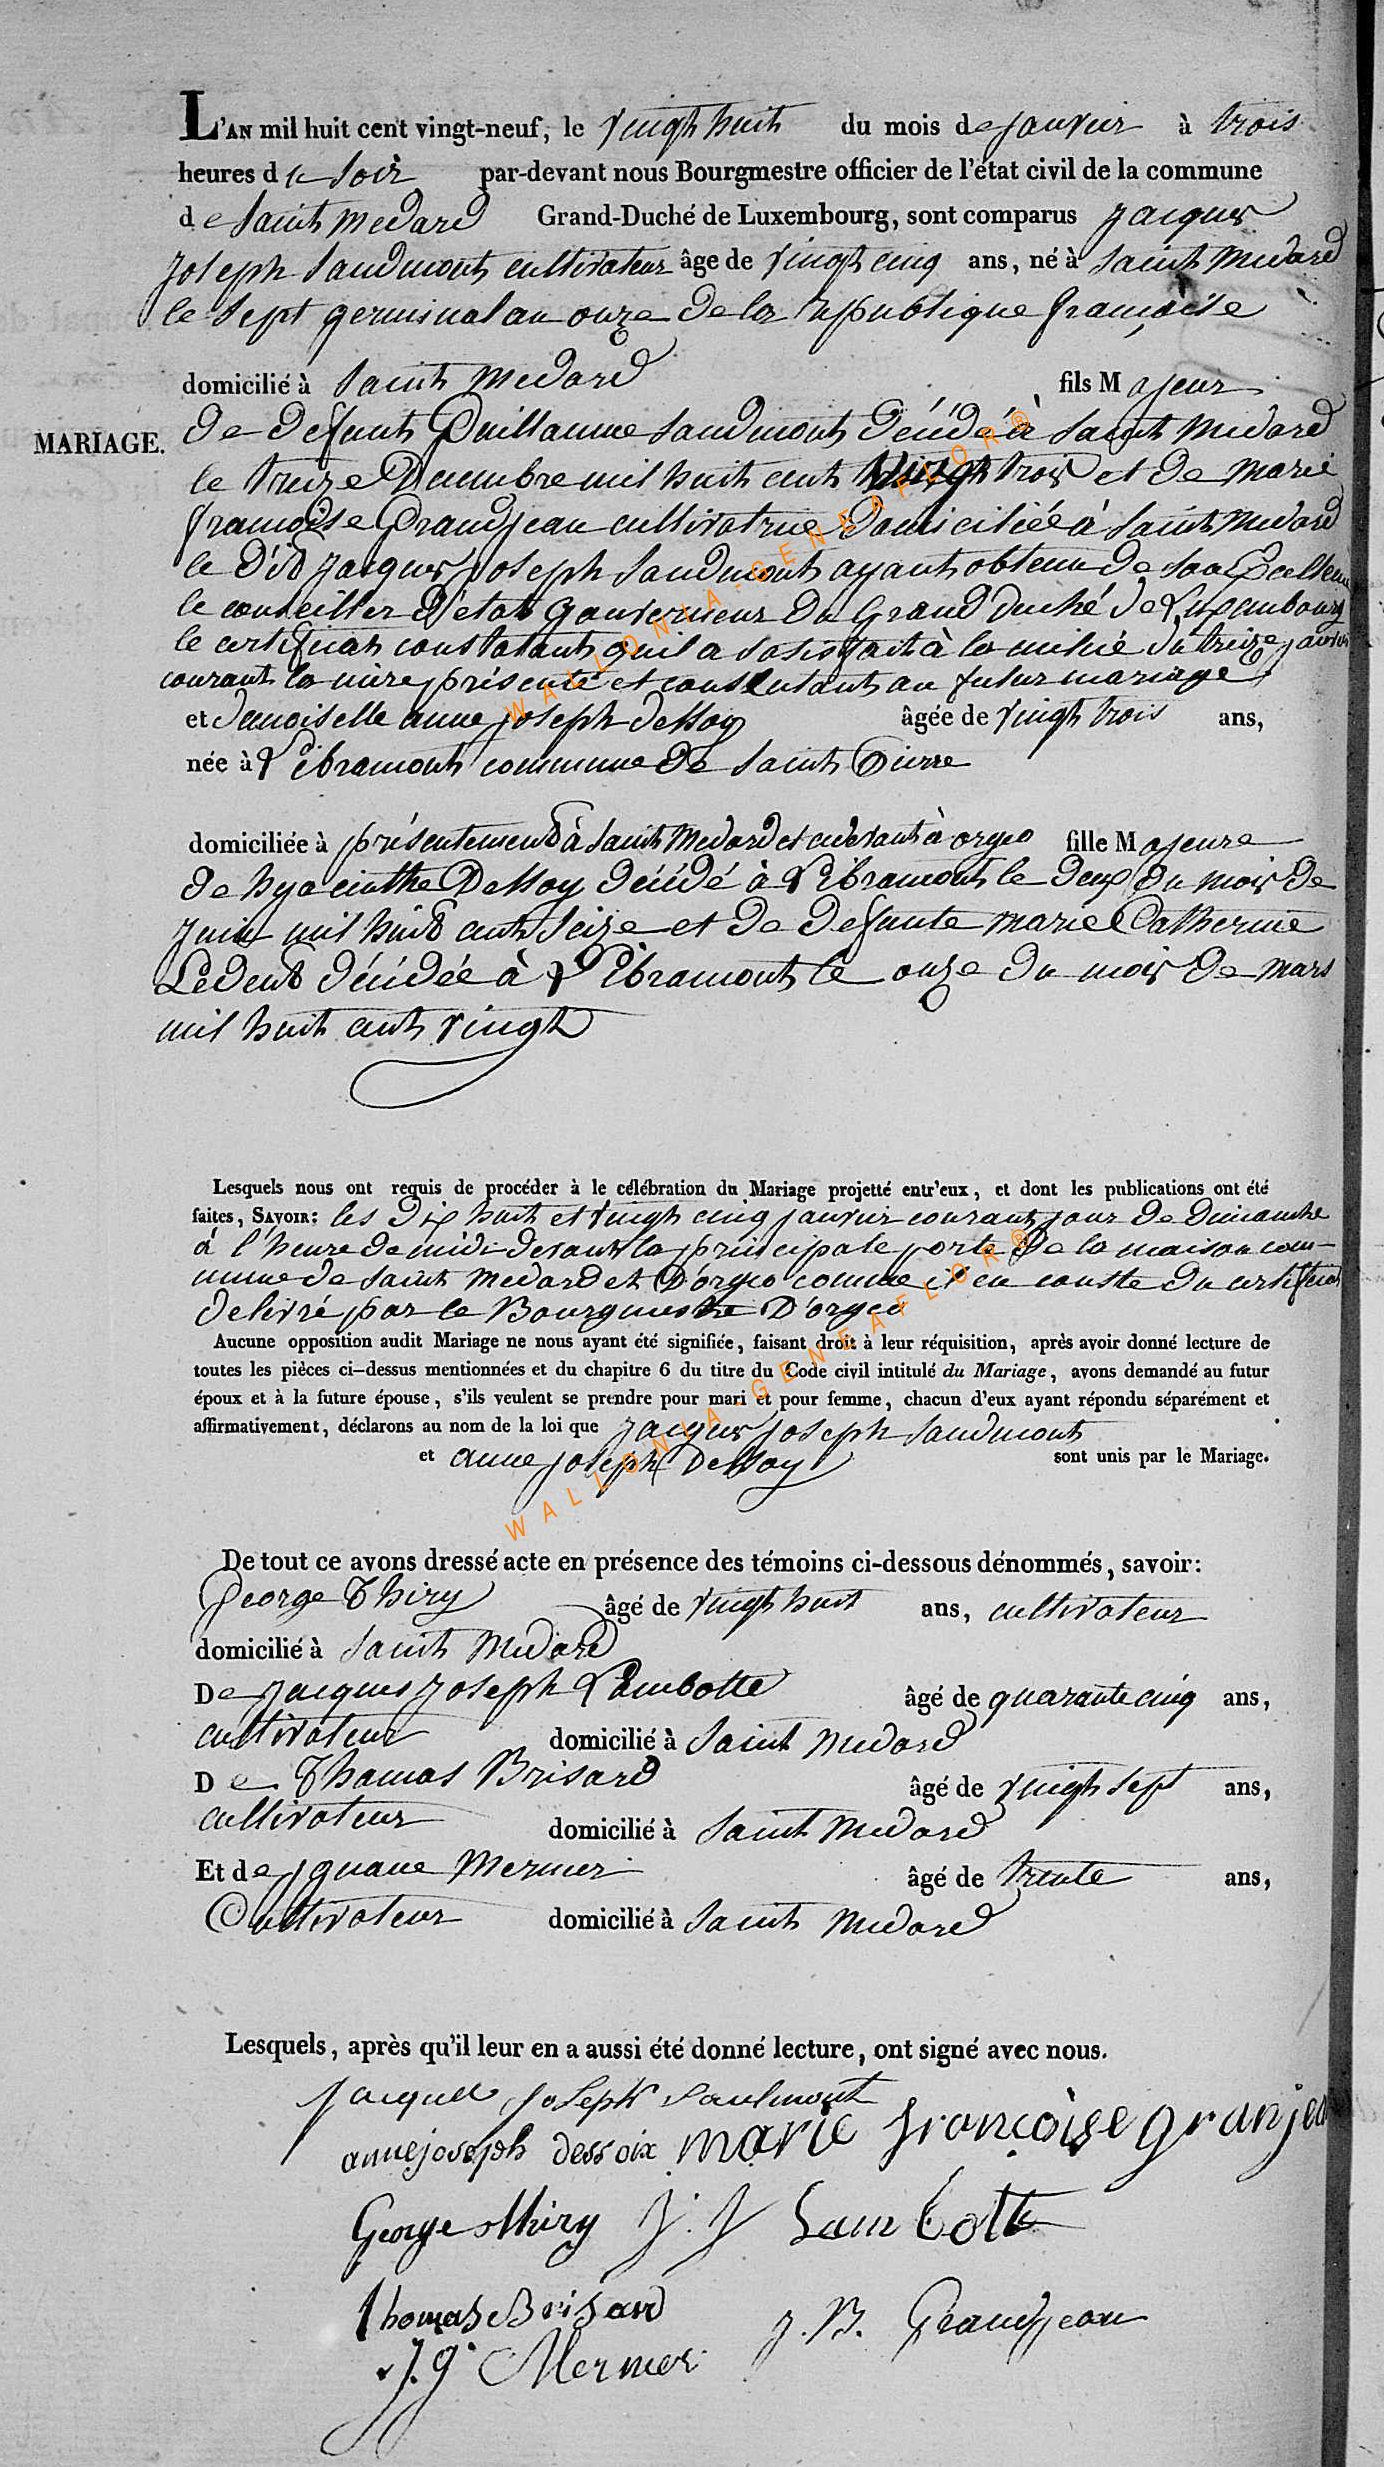 L'AN mil huit cent vingt-neuf, le vingt huit du mois de janvier à trois
heures du soir par-devant nous Bourgmestre officier de l'état civil de la commune
de Saint Medard Grand-Duché de Luxembourg, sont comparus Jacques
Joseph Saudmont cultivateur âge de vingt cinq ans, né à Saint Medard
le sept germinal an onze de la republique françoise
domicilié à Saint Medard fils Majeur
MARIAGE. de defunt Guillaume Saudmont décédé à Saint Medard
le treize Decembre mil huit cent vingt trois et de marie
françoise Grandjean cultivatrice domiciliée à Saint Medard
le dit Jacques Joseph Saudmont ayant obtenu de son Excellence
le conseiller d'état gouverneur du Grand duché de Luxembourg
le certificat constatant qu'il a satisfait à la milice du treize janvier
courant la mère présente et consentant au futur mariage
et demoiselle anne joseph dessoy âgée de vingt trois ans,
née à Libramont commune de Saint Pierre
domiciliée à présentement à Saint Medard et cidevant à orgeo fille Majeure
de hyacinthe Dessoy décédé à Libramont le deux du mois de
Juin mil huit cent seize et de defunte marie Catherine
Ledent décédée à Libramont le onze du mois de mars
mil huit cent vingt
Lesquels nous ont requis de procéder à le célébration du Mariage projetté entr'eux, et dont les publications ont été
faites, SAVOIR: les dix huit et vingt cinq janvier courant jour de Dimanche
à l'heure de midi devant la principale porte de la maison com-
mune de Saint Medard et D'orgeo comme il en conste du certificat
delivré par le Bourgmestre D'orgeo
Aucune opposition audit Mariage ne nous ayant été signifiée, faisant droit à leur réquisition, après avoir donné lecture de
toutes les pièces ci-dessus mentionnées et du chapitre 6 du titre du Code civil intitulé du Mariage, avons demandé au futur
époux et à la future épouse, s'ils veulent se prendre pour mari et pour femme, chacun d'eux ayant répondu séparément et
affirmativement, déclarons au nom de la loi que Jacques Joseph Saudmont
et anne joseph Dessoy sont unis par le Mariage.
De tout ce avons dressé acte en présence des témoins ci-dessous dénommés, savoir:
George Thiry âgé de vingt huit ans, cultivateur
domicilié à Saint Medard
De Jacques Joseph Lambotte âgé de quarante cinq ans,
cultivateur domicilié à Saint Medard
De Thomas Brisard âgé de vingt sept ans,
cultivateur domicilié à Saint Medard
Et de jgnace Mermer âgé de trente ans,
Cultivateur domicilié à Saint Medard
Lesquels, après qu'il leur en a aussi été donné lecture, ont signé avec nous.
Jacques Joseph Saulmont
anne joseph dessoix marie françoise granjean
George thiry J. J Lambotte
thomas Brisard J. B. Grandjean
J. g. Mermer
WALLONIA-GENEAFLOR®
WALLONIA-GENEAFLOR®